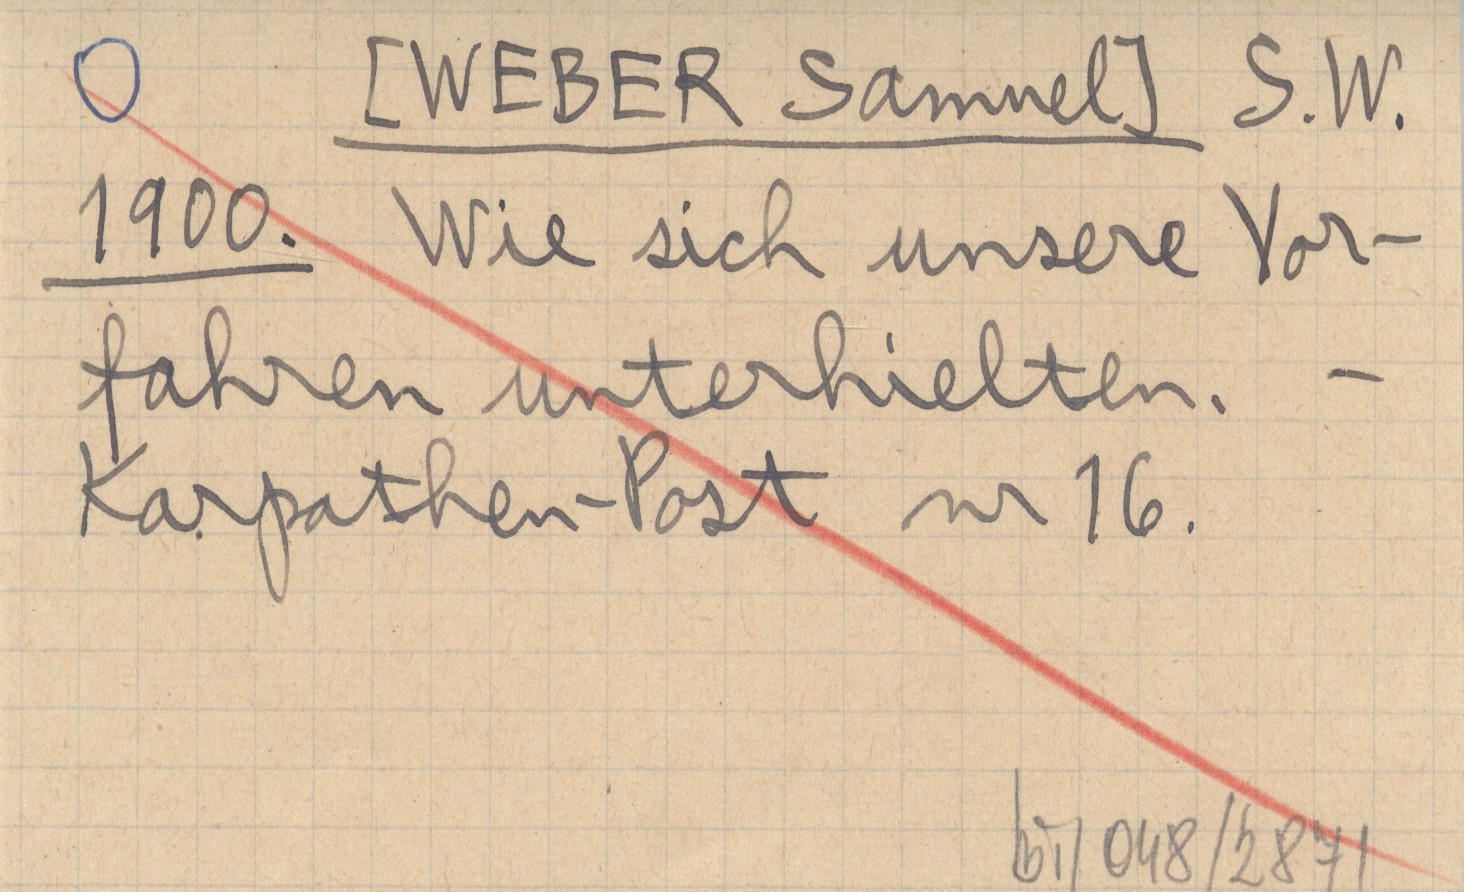 [WEBER Samuel] S.W.
1900. Wie sich unsere Vor-
fahren unterhielten. –
Karpathen-Post nr 16.
bi/048/2871